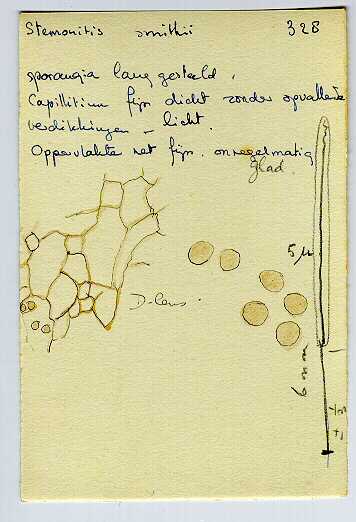 Stemonitis smithii 328
sporangia lang gesteeld.
Capillitium fijn dicht zonder opvallende
verdikkingen - licht.
Oppervlakte net fijn. onregelmatig
glad.
D-lens.
5 µ
6 mm